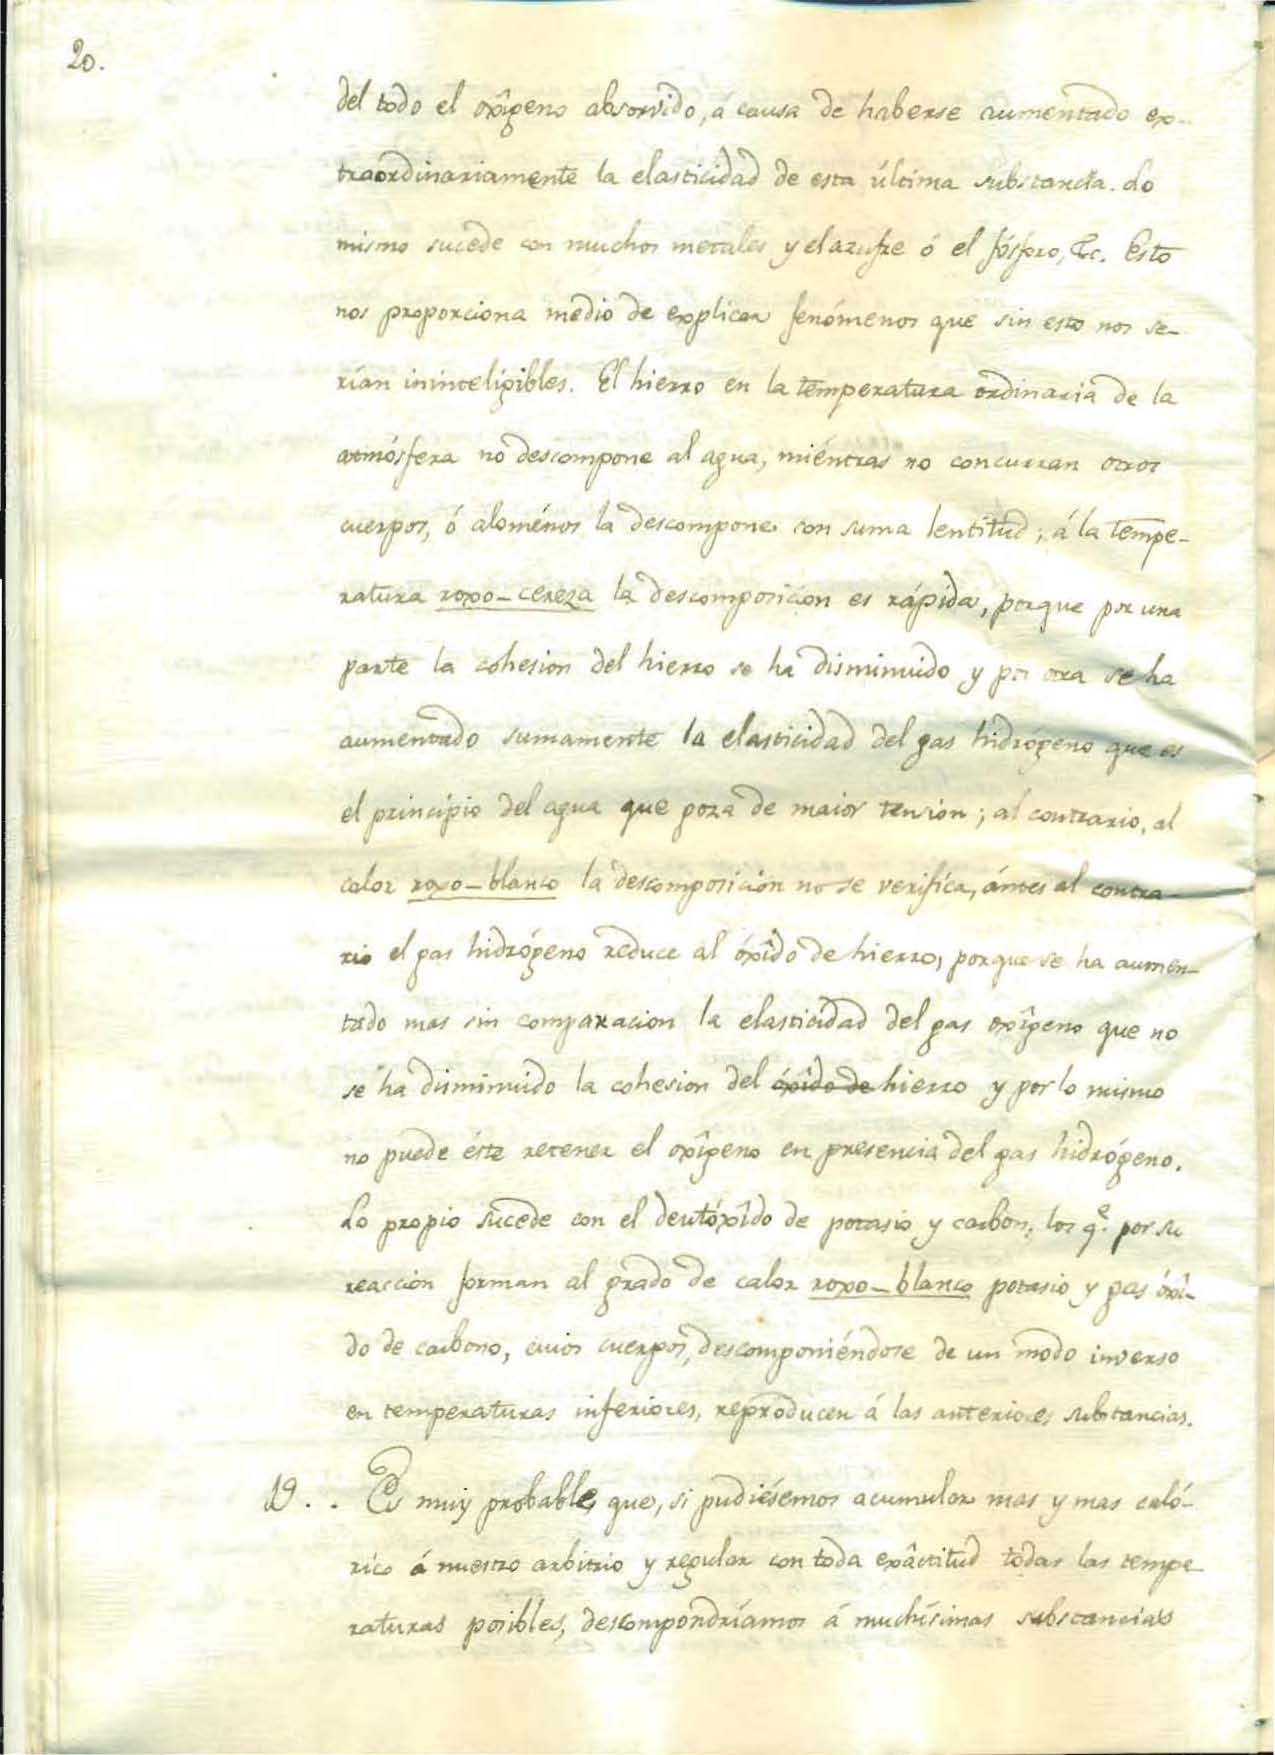 20.
del todo el oxîgeno absorvido, á causa de haberse aumentado ex-
traordinariamente la elasticidad de esta última substancia. Lo
mismo sucede con muchos metales y el azufre ó el fósforo, &c. Esto
nos proporciona medio de explicar fenómenos que sin esto nos se-
rían ininteligibles. El hierro en la temperatura ordinaria de la
atmósfera no descompone al agua, miéntras no concurran otros
cuerpos, ó aloménos la descompone con suma lentitud; á la tempe-
ratura roxo-cereza la descomposicion es rápida, porque por una
parte la cohesion del hierro se ha disminuido y por otra se ha
aumentado sumamente la elasticidad del gas hidrógeno que es
el principio del agua que goza de maior tension; al contrario, al
calor roxo-blanco la descomposicion no se verifica, ántes al contra-
rio el gas hidrógeno reduce al óxîdo de hierro, porque se ha aumen-
tado mas sin comparacion la elasticidad del gas oxîgeno que no
se ha disminuido la cohesion del óxîdo de hierro y por lo mismo
no puede éste retener el oxîgeno en presencia del gas hidrógeno.
Lo propio sucede con el deutóxîdo de potasio y carbon, los q.e por su
reaccion forman al grado de calor roxo-blanco potasio y gas óxî-
do de carbono, cuios cuerpos, descomponiéndose de un modo inverso
en temperaturas inferiores, reproducen á las anteriores substancias.
19. . Es muy probable, que, si pudiésemos acumular mas y mas caló-
rico á nuestro arbitrio y regular con toda exâctitud todas las tempe
raturas posibles, descompondríamos á muchísimas substancias